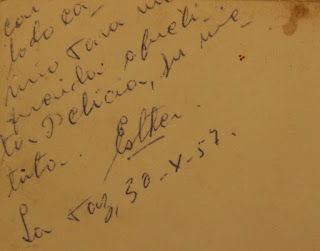 con
todo ca-
riño para mi
querida abueli-
ta Felicia, su nie-
tita. Esther.
La Paz, 30-X-57.